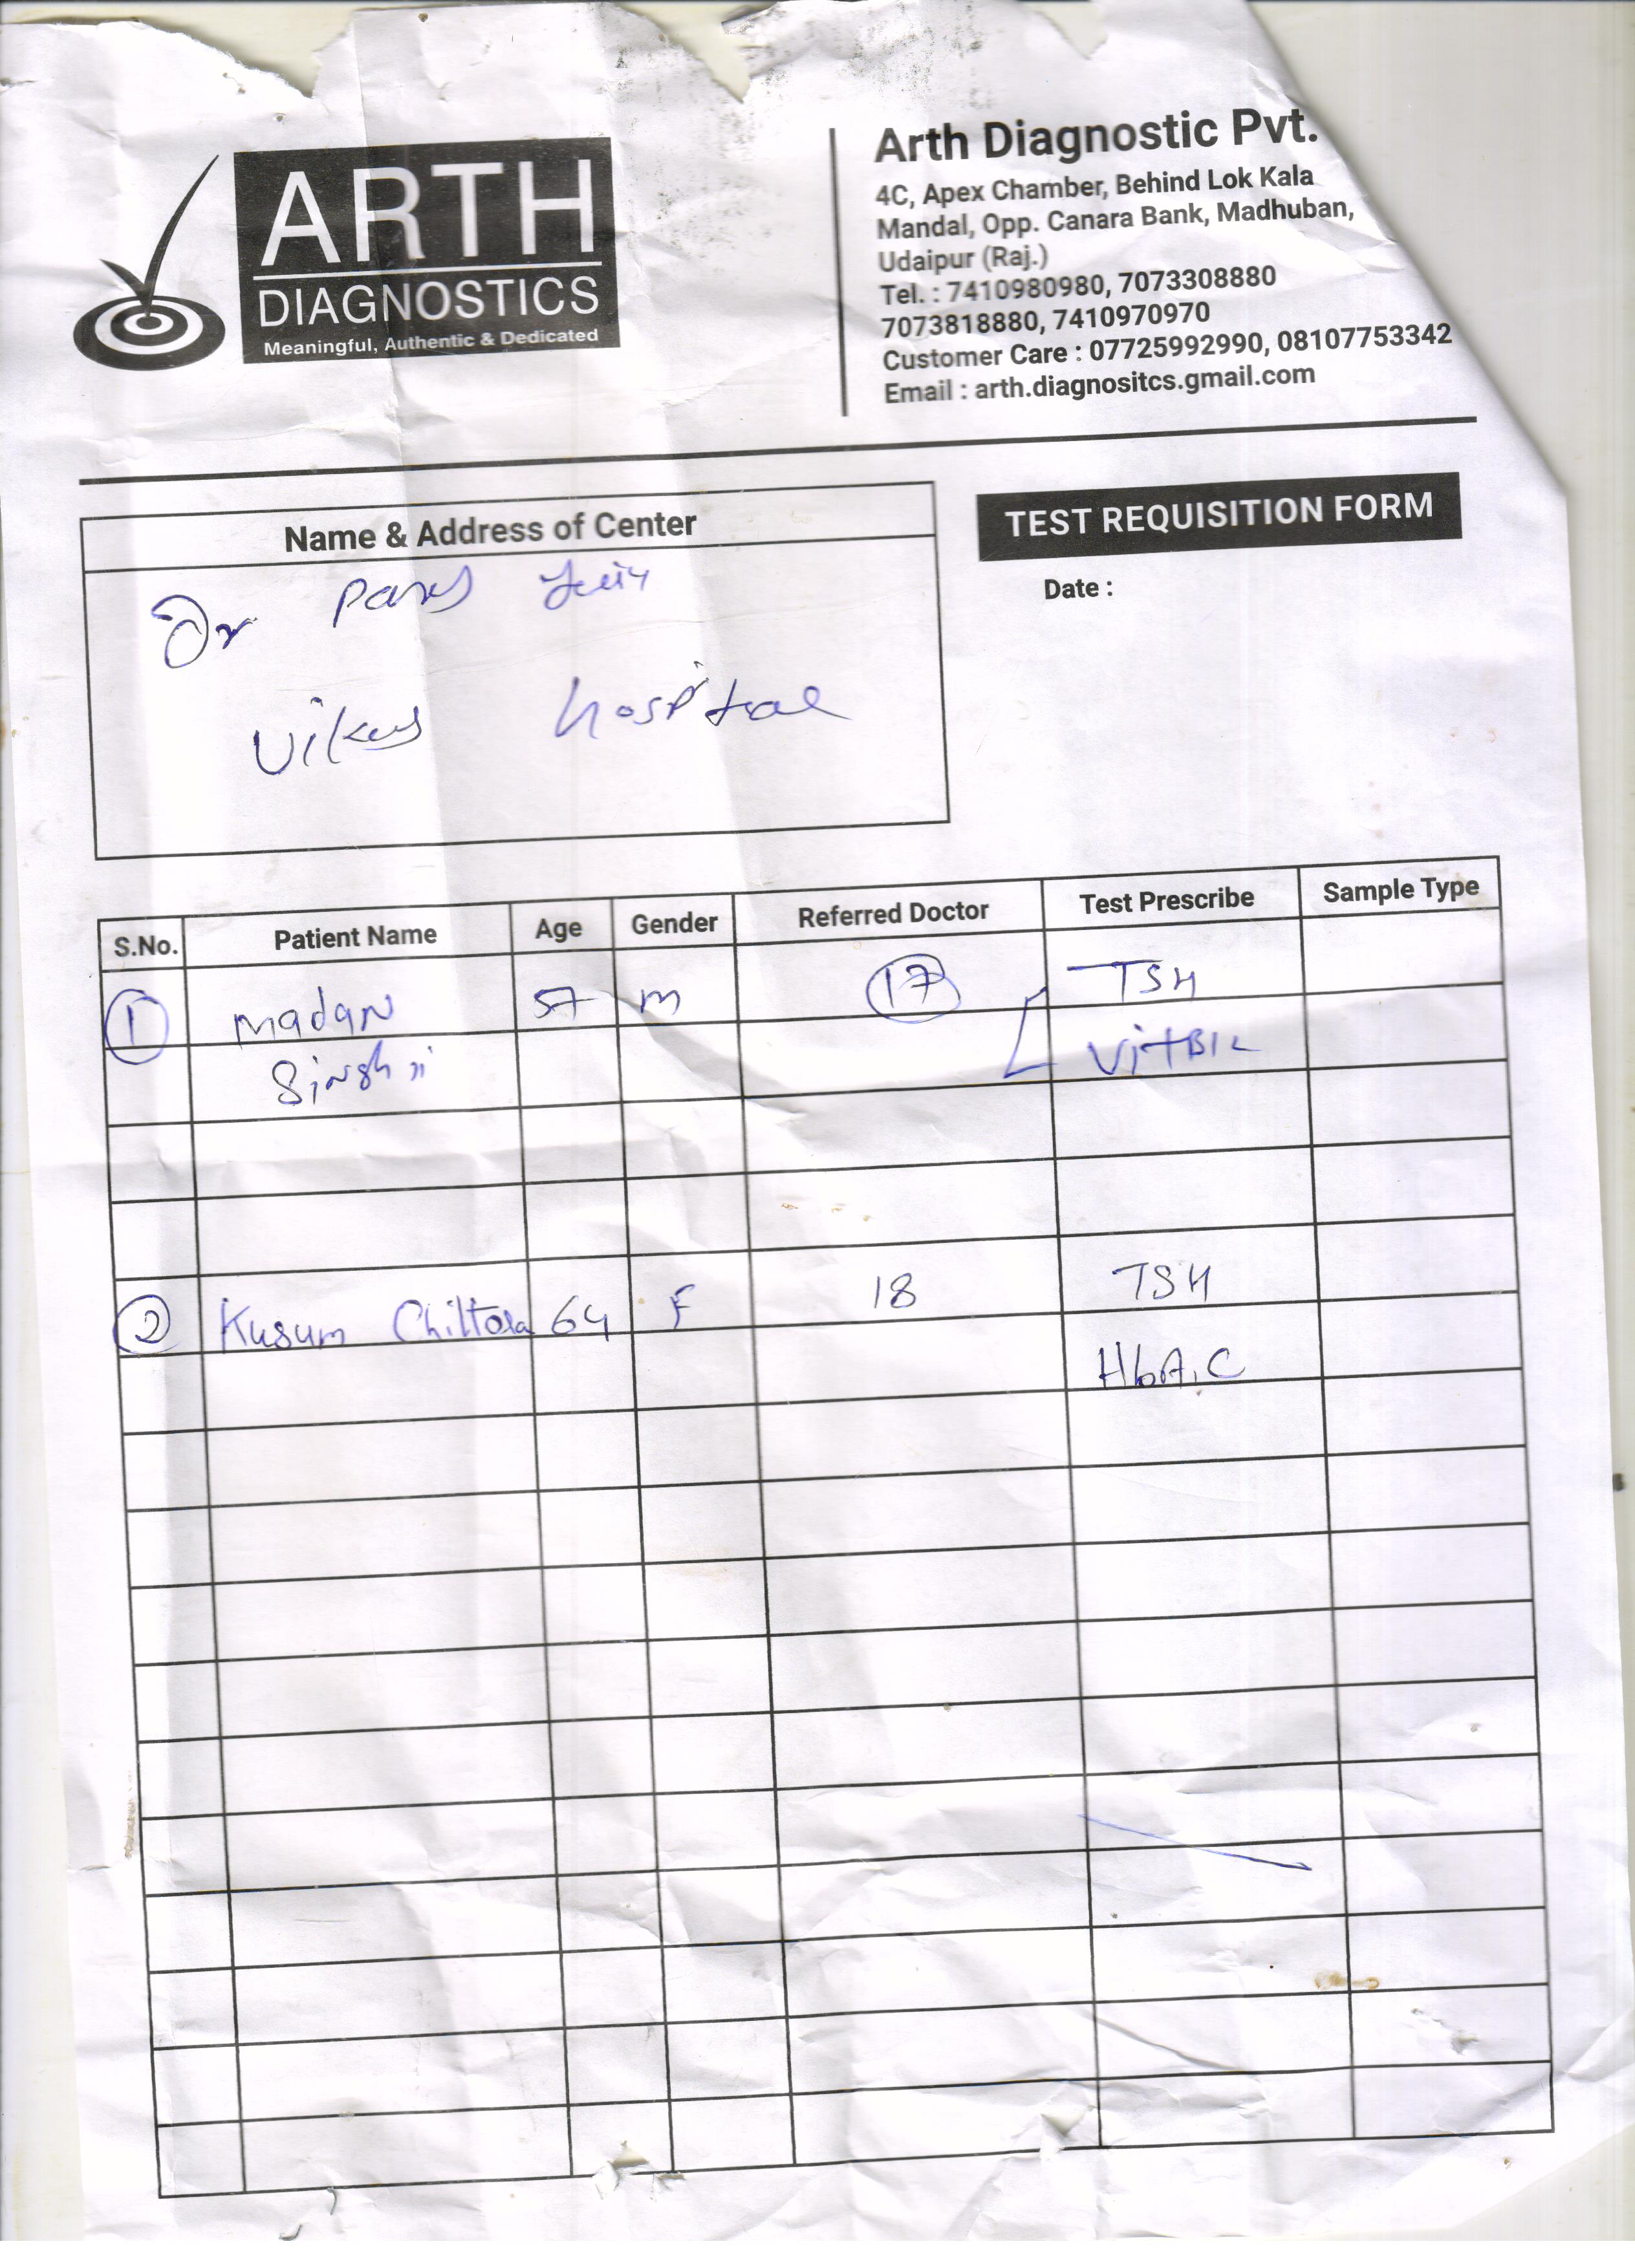 ARTH
DIAGNOSTICS
Meaningful, Authentic & Dedicated
Arth Diagnostic Pvt.
4C, Apex Chamber, Behind Lok Kala
Mandal, Opp. Canara Bank, Madhuban,
Udaipur (Raj.)
Tel. : 7410980980, 7073308880
7073818880, 7410970970
Customer Care : 07725992990, 08107753342
Email : arth.diagnositcs.gmail.com
Name & Address of Center
Dr
vikas hospital
TEST REQUISITION FORM
Date :
S.No. Patient Name Age Gender Referred Doctor Test Prescribe Sample Type
1 Madan 57 m 17 TSH
Singh ji VitB12
2 Kusum Chittora 64 F 18 TSH
HbA1C